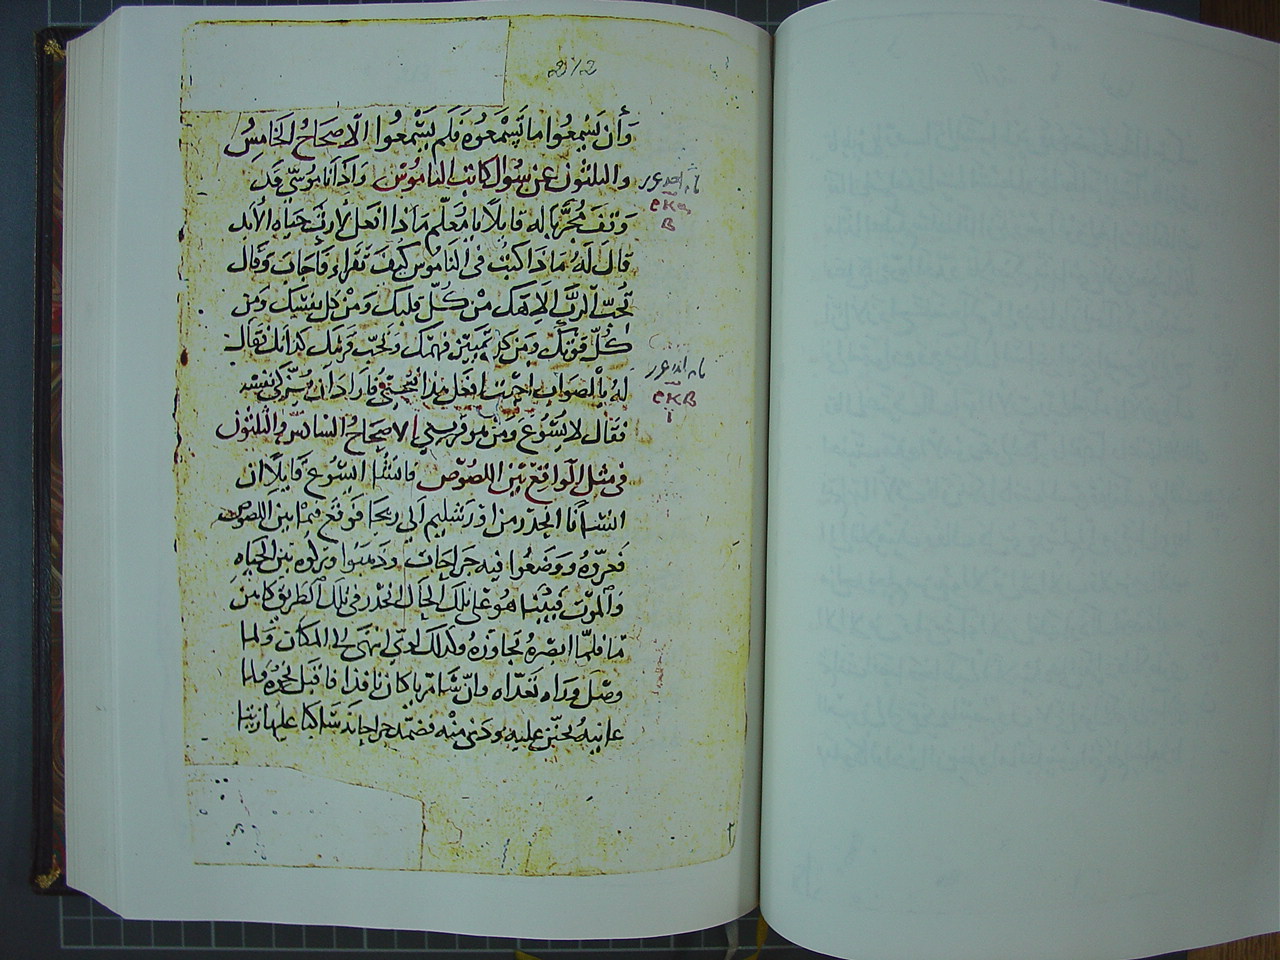 212
وَأَن يَسْمَعُوا ما تَسْمَعُوه فَلَم يَسْمَعُوا الاصحَاحُ الخَامِسُ
والثلثون عن سُوال كاتب الناموُس وَاذا نامُوسّى قَد
وَقفَ مُجرّبا له قايلًا يا مُعَلّم مَاذا افعل لأرث حَياه الأبد
قالَ لَهُ مَاذا كتبُ فى الناموُس كَيف تَقراء فاجابَ وقال
تُحبّ الربَّ الاهَك من كُلّ قلبك وَمن كل نفسك وَمن
كُلّ قوتكَ ومن كل تمييز فهمك وتحب قريبك كذاتك فقال
لهُ بالصواب اجبت افعل هذا فتحيى فاراد ان يُزكى نفسه
فقال لايسُوعَ ومن هو قريبي الاصحَاحُ السَادس والثلثون
فى مثل الواقع بَين اللصُوص فانشا ايسُوع قايلًا ان
انسانا انحدر من اورشليم الى ريحا فوقع فيما بين اللصوص
فعرّوه ووَضعُوا فيه جَراحَات وذهَبُوا وتركُوه بين الحيَاه
وَالموت فبينما هُو على تلك الحال انحدر فى تلك الطريق كاهن
ما فلمّا ابصرهُ تجاوزهُ وكذلك لاوى انتهى الى المكان ولما
وصَل وراه تعدّاه وان سامريا كان نافذا فاقبل نحوهُ ولما
عاينهُ تحنن عليه ودنى منه فضمّد جراحاته سَاكبا عليها زيتا
ρκα
β
ρκβ
ι